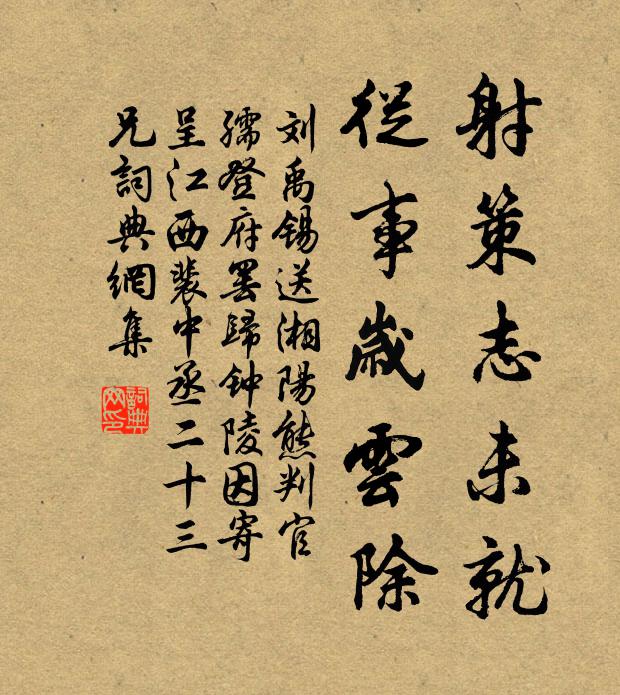 射策志未就
從事歲雲除
刘禹锡送湘陽熊判官
孺登府罢歸钟陵因寄
呈江西裴中丞二十三
兄詞典網集
詞典網印